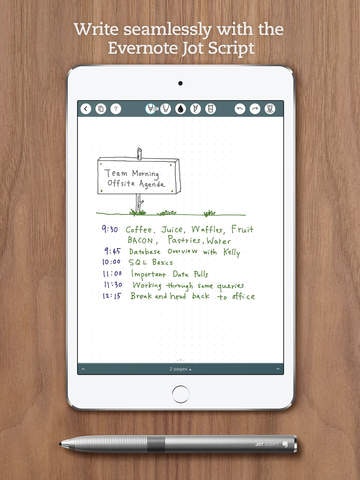 Write seamlessly with the
Evernote Jot Script
Team Morning
Offsite Agenda
9:30 Coffee, Juice, Waffles, Fruit
BACON, Pastries, Water
9:45 Database Overview with Kelly
10:00 SQL Basics
11:00 Important Data Pulls
11:30 Working through some queries
12:15 Break and head back to office
2 pages